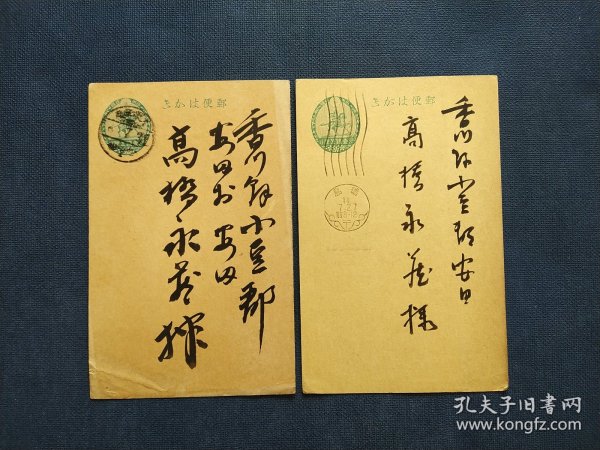 きかは便郵
香川縣小豆郡
安田村 安田
高橋永蔵様
きかは便郵
香川縣小豆郡安田
高橋永蔵様
孔夫子旧书网
www.kongfz.com